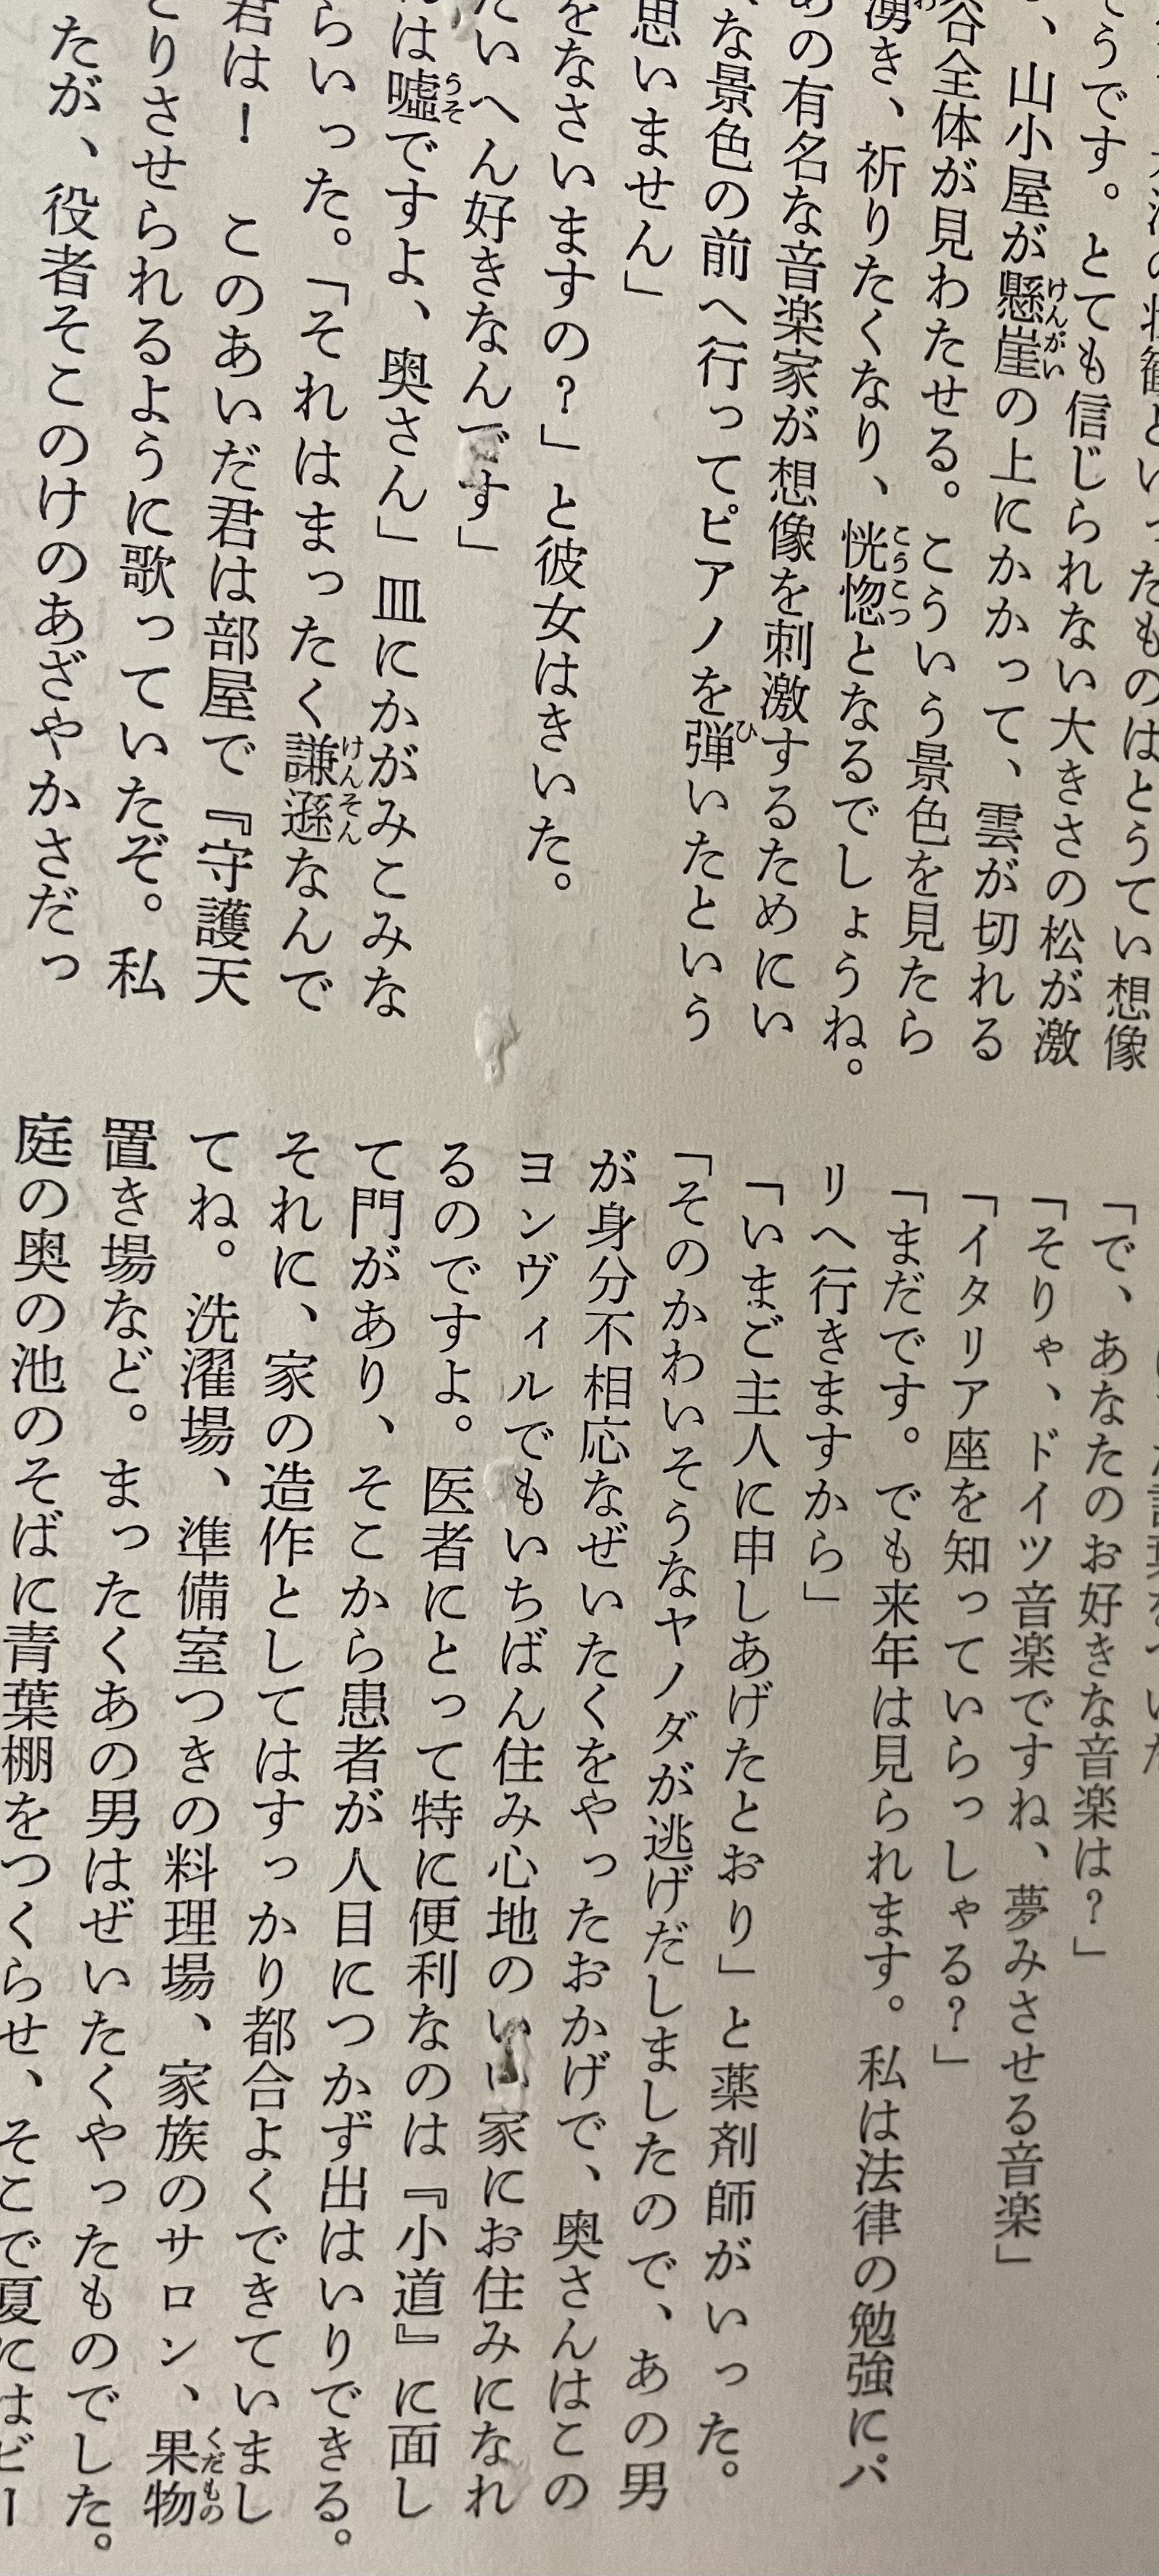 の壮観といったものはとうてい想像
うです。とても信じられない大きさの松が激
、山小屋が懸崖の上にかかって、雲が切れる
谷全体が見わたせる。こういう景色を見たら
湧き、祈りたくなり、恍惚となるでしょうね。
あの有名な音楽家が想像を刺激するためにい
な景色の前へ行ってピアノを弾いたという
思いません」
をなさいますの？」と彼女はきいた。
いへん好きなんです」
は嘘ですよ、奥さん」皿にかがみこみな
らいった。「それはまったく謙遜なんで
君は！　このあいだ君は部屋で『守護天
りさせられるように歌っていたぞ。私
たが、役者そこのけのあざやかさだっ
「で、あなたのお好きな音楽は？」
「そりゃ、ドイツ音楽ですね、夢みさせる音楽」
「イタリア座を知っていらっしゃる？」
「まだです。でも来年は見られます。私は法律の勉強にパ
リへ行きますから」
「いまご主人に申しあげたとおり」と薬剤師がいった。
「そのかわいそうなヤノダが逃げだしましたので、あの男
が身分不相応なぜいたくをやったおかげで、奥さんはこの
ヨンヴィルでもいちばん住み心地のいい家にお住みになれ
るのですよ。医者にとって特に便利なのは『小道』に面し
て門があり、そこから患者が人目につかず出はいりできる。
それに、家の造作としてはすっかり都合よくできていまし
てね。洗濯場、準備室つきの料理場、家族のサロン、果物
置き場など。まったくあの男はぜいたくやったものでした。
庭の奥の池のそばに青葉棚をつくらせ、そこで夏にはビー